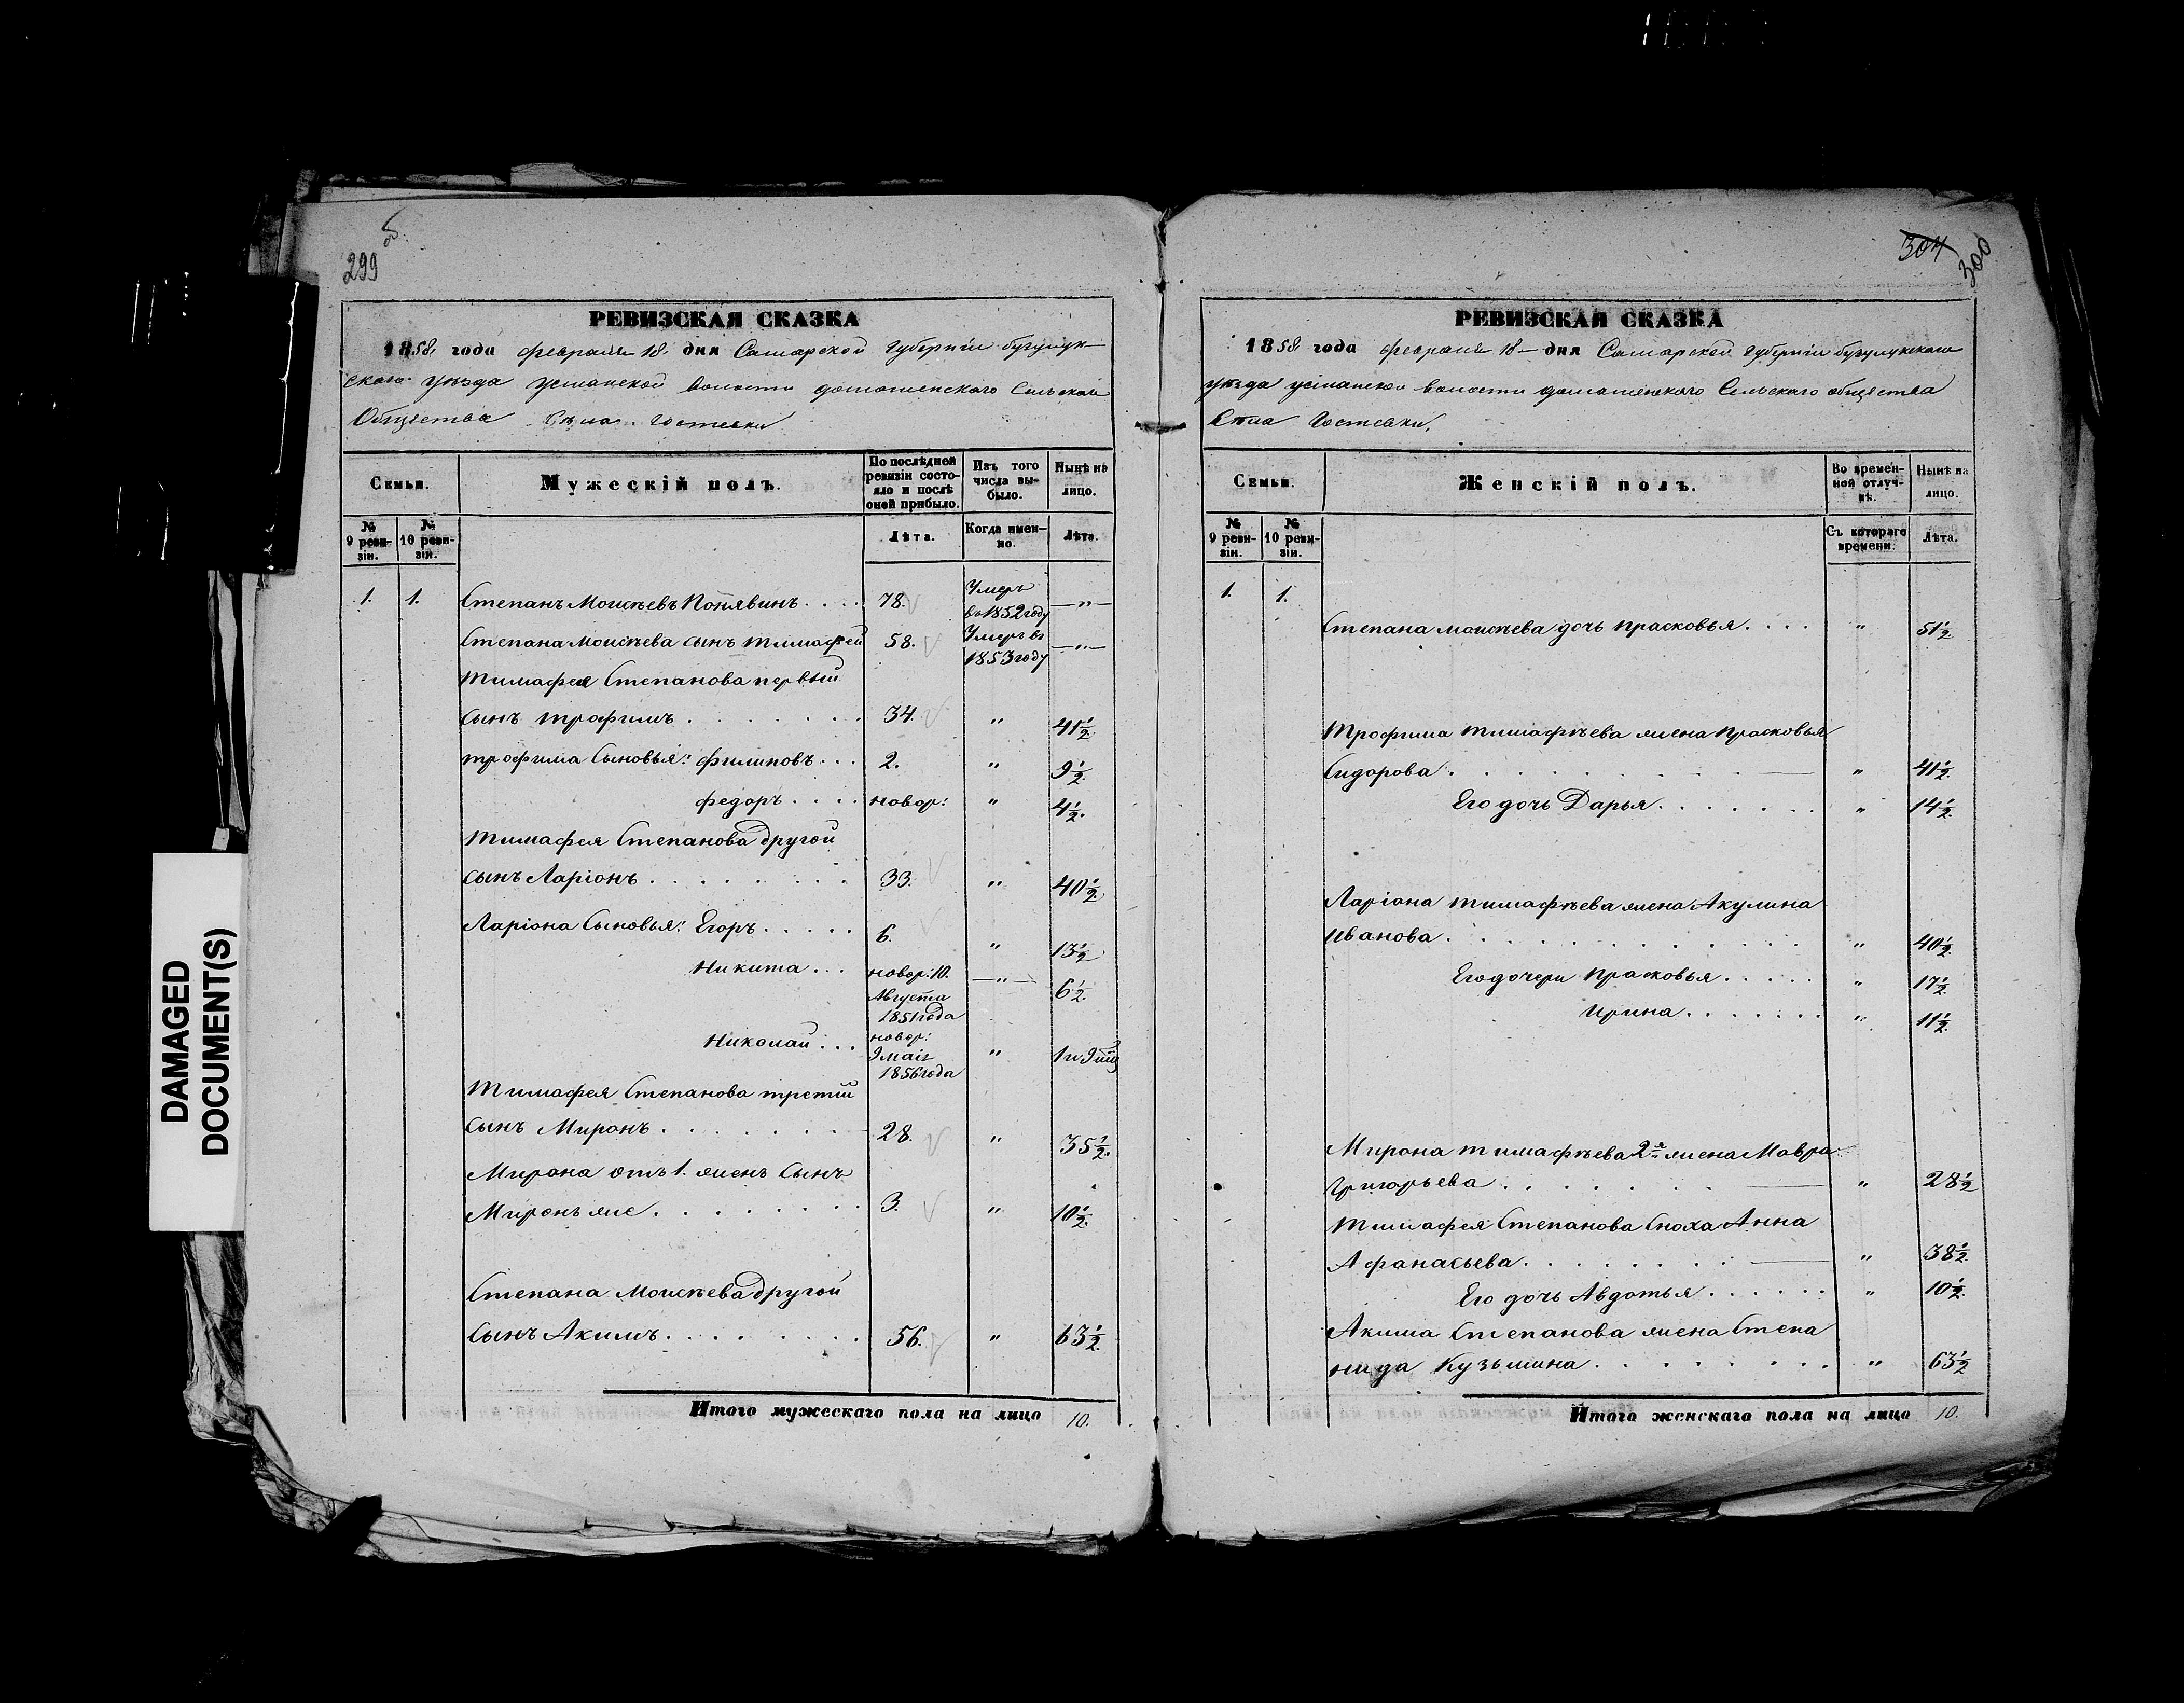 299
об
РЕВИЗСКАЯ СКАЗКА
1858. года февраля 18. дня Самарской Губернiи бузулук-
скаго уѣзда Усманской волости домашенскаго Сельскаго
Общества Села Гостевки
Семьи. Мужескiй полъ. По послѣдней ревизiи состояло и послѣ оной прибыло. Изъ того числа выбыло. Нынѣ на лицо.
№ 9 ревизiи. № 10 ревизiи. Лѣта. Когда именно. Лѣта.
1. 1. Степанъ Моисѣевъ Потявинъ.... 78. Умеръ во 1852 году —"—
Степана Моисѣева сынъ Тимафей 58. Умеръ въ 1853 году —"—
Тимафея Степанова первый
сынъ трофимъ....... 34. " 41½.
трофима Сыновья: филиповъ... 2. " 9½.
федоръ.... новор: " 4½.
Тимафея Степанова другой
сынъ Ларiонъ........ 33. " 40½.
Ларiона Сыновья: Егоръ..... 6. " 13½
Никита... новор: 10. Августа 1851 года —"— 6½.
Николай... новор: 9 маiя 1856 года " 1 и 9 мц
Тимафея Степанова третiй
Сынъ Миронъ........ 28. " 35½.
Мирона отъ 1. жены Сынъ
Миронъ же......... 3. " 10½.
Степана Моисѣева другой
Сынъ Акимъ........ 56. " 63½.
Итого мужескаго пола на лицо 10.
304
300
РЕВИЗСКАЯ СКАЗКА
1858. года февраля 18— дня Самарской Губернiи бузулукскаго
уѣзда усманской волости домашенскаго Сельскаго общества
Села Гостевки.
Семьи. Женскiй полъ. Во временной отлучкѣ. Нынѣ на лицо.
№ 9 ревизiи. № 10 ревизiи. Съ котораго времени. Лѣта.
1. 1.
Степана моисѣева дочь прасковья.... " 51½.
Трофима тимафѣева жена прасковья
Сидорова......... " 41½.
Его дочь Дарья....... " 14½.
Ларiона тимафѣева жена Акулина
Иванова........... " 40½.
Его дочери прасковья..... " 17½.
Ирина....... " 11½.
Мирона тимафѣева 2я жена Мавра
Григорьева....... " 28½
Тимафея Степанова Сноха Анна
Афанасьева........ " 38½.
Его дочь Авдотья...... " 10½.
Акима Степанова жена Степа
нида Кузьмина........ " 63½
Итого женскаго пола на лицо 10.
DAMAGED
DOCUMENT(S)